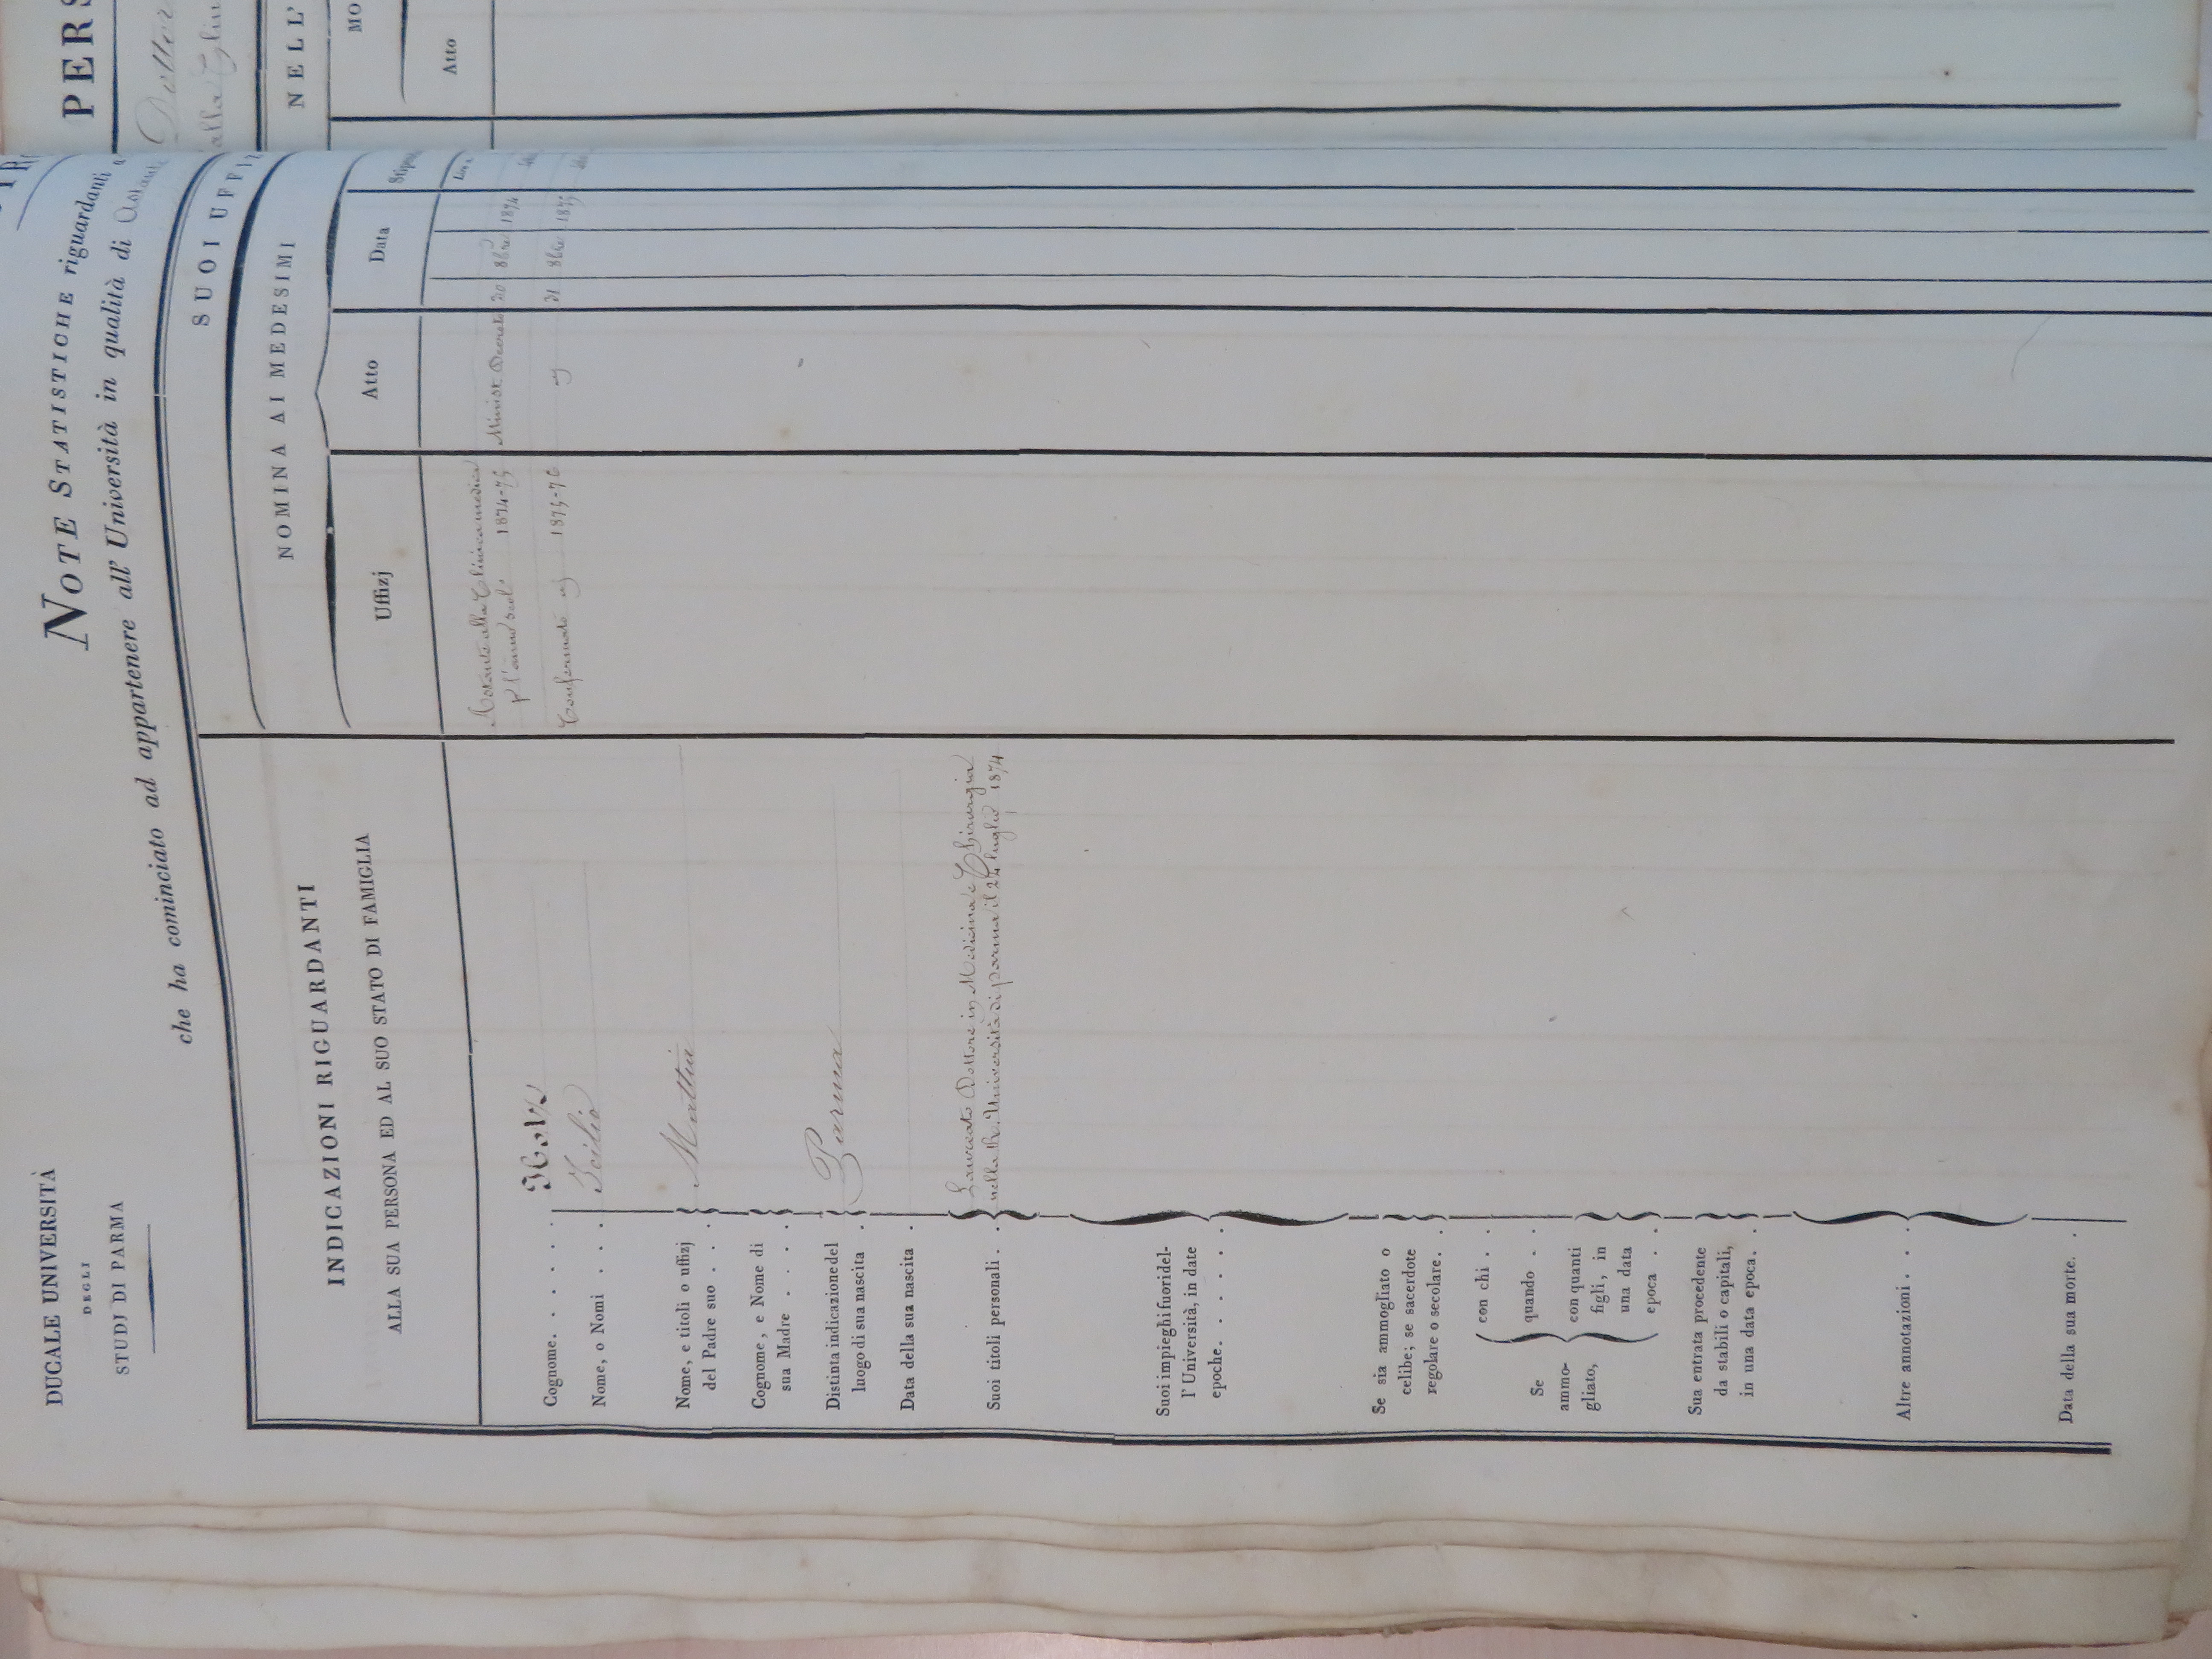 DUCALE UNIVERSITÀ
DEGLI
STUDJ DI PARMA
NOTE STATISTICHE riguardanti
che ha cominciato ad appartenere all' Università in qualità di
INDICAZIONI RIGUARDANTI
ALLA SUA PERSONA ED AL SUO STATO DI FAMIGLIA
Cognome. . . . .
Nome, o Nomi . . . Icilio
Nome, e titoli o uffizj
del Padre suo . . . Mattia
Cognome, e Nome di
sua Madre . . . .
Distinta indicazione del
luogo di sua nascita . Parma
Data della sua nascita .
Suoi titoli personali . . Laureato Dottore in Medicina e Chirurgia
nella R. Università di Parma il 24 luglio 1874
Suoi impieghi fuori del-
l' Università, in date
epoche. . . . . .
Se sia ammogliato o
celibe; se sacerdote
regolare o secolare. .
Se
ammo-
gliato,
con chi . .
quando . .
con quanti
figli, in
una data
epoca . .
Sua entrata procedente
da stabili o capitali,
in una data epoca. .
Altre annotazioni . . .
Data della sua morte. .
SUOI UFFIZ
NOMINA AI MEDESIMI
Uffizj
Atto
Data
Stipen
Lire
Astante alla Clinica medica
p l'anno scol. 1874-75
Minist. Decreto 20 8bre 1874
Confermato 1875-76
21 8bre 1875
PERS
Dottor
alla Clin
NELL'
MO
Atto